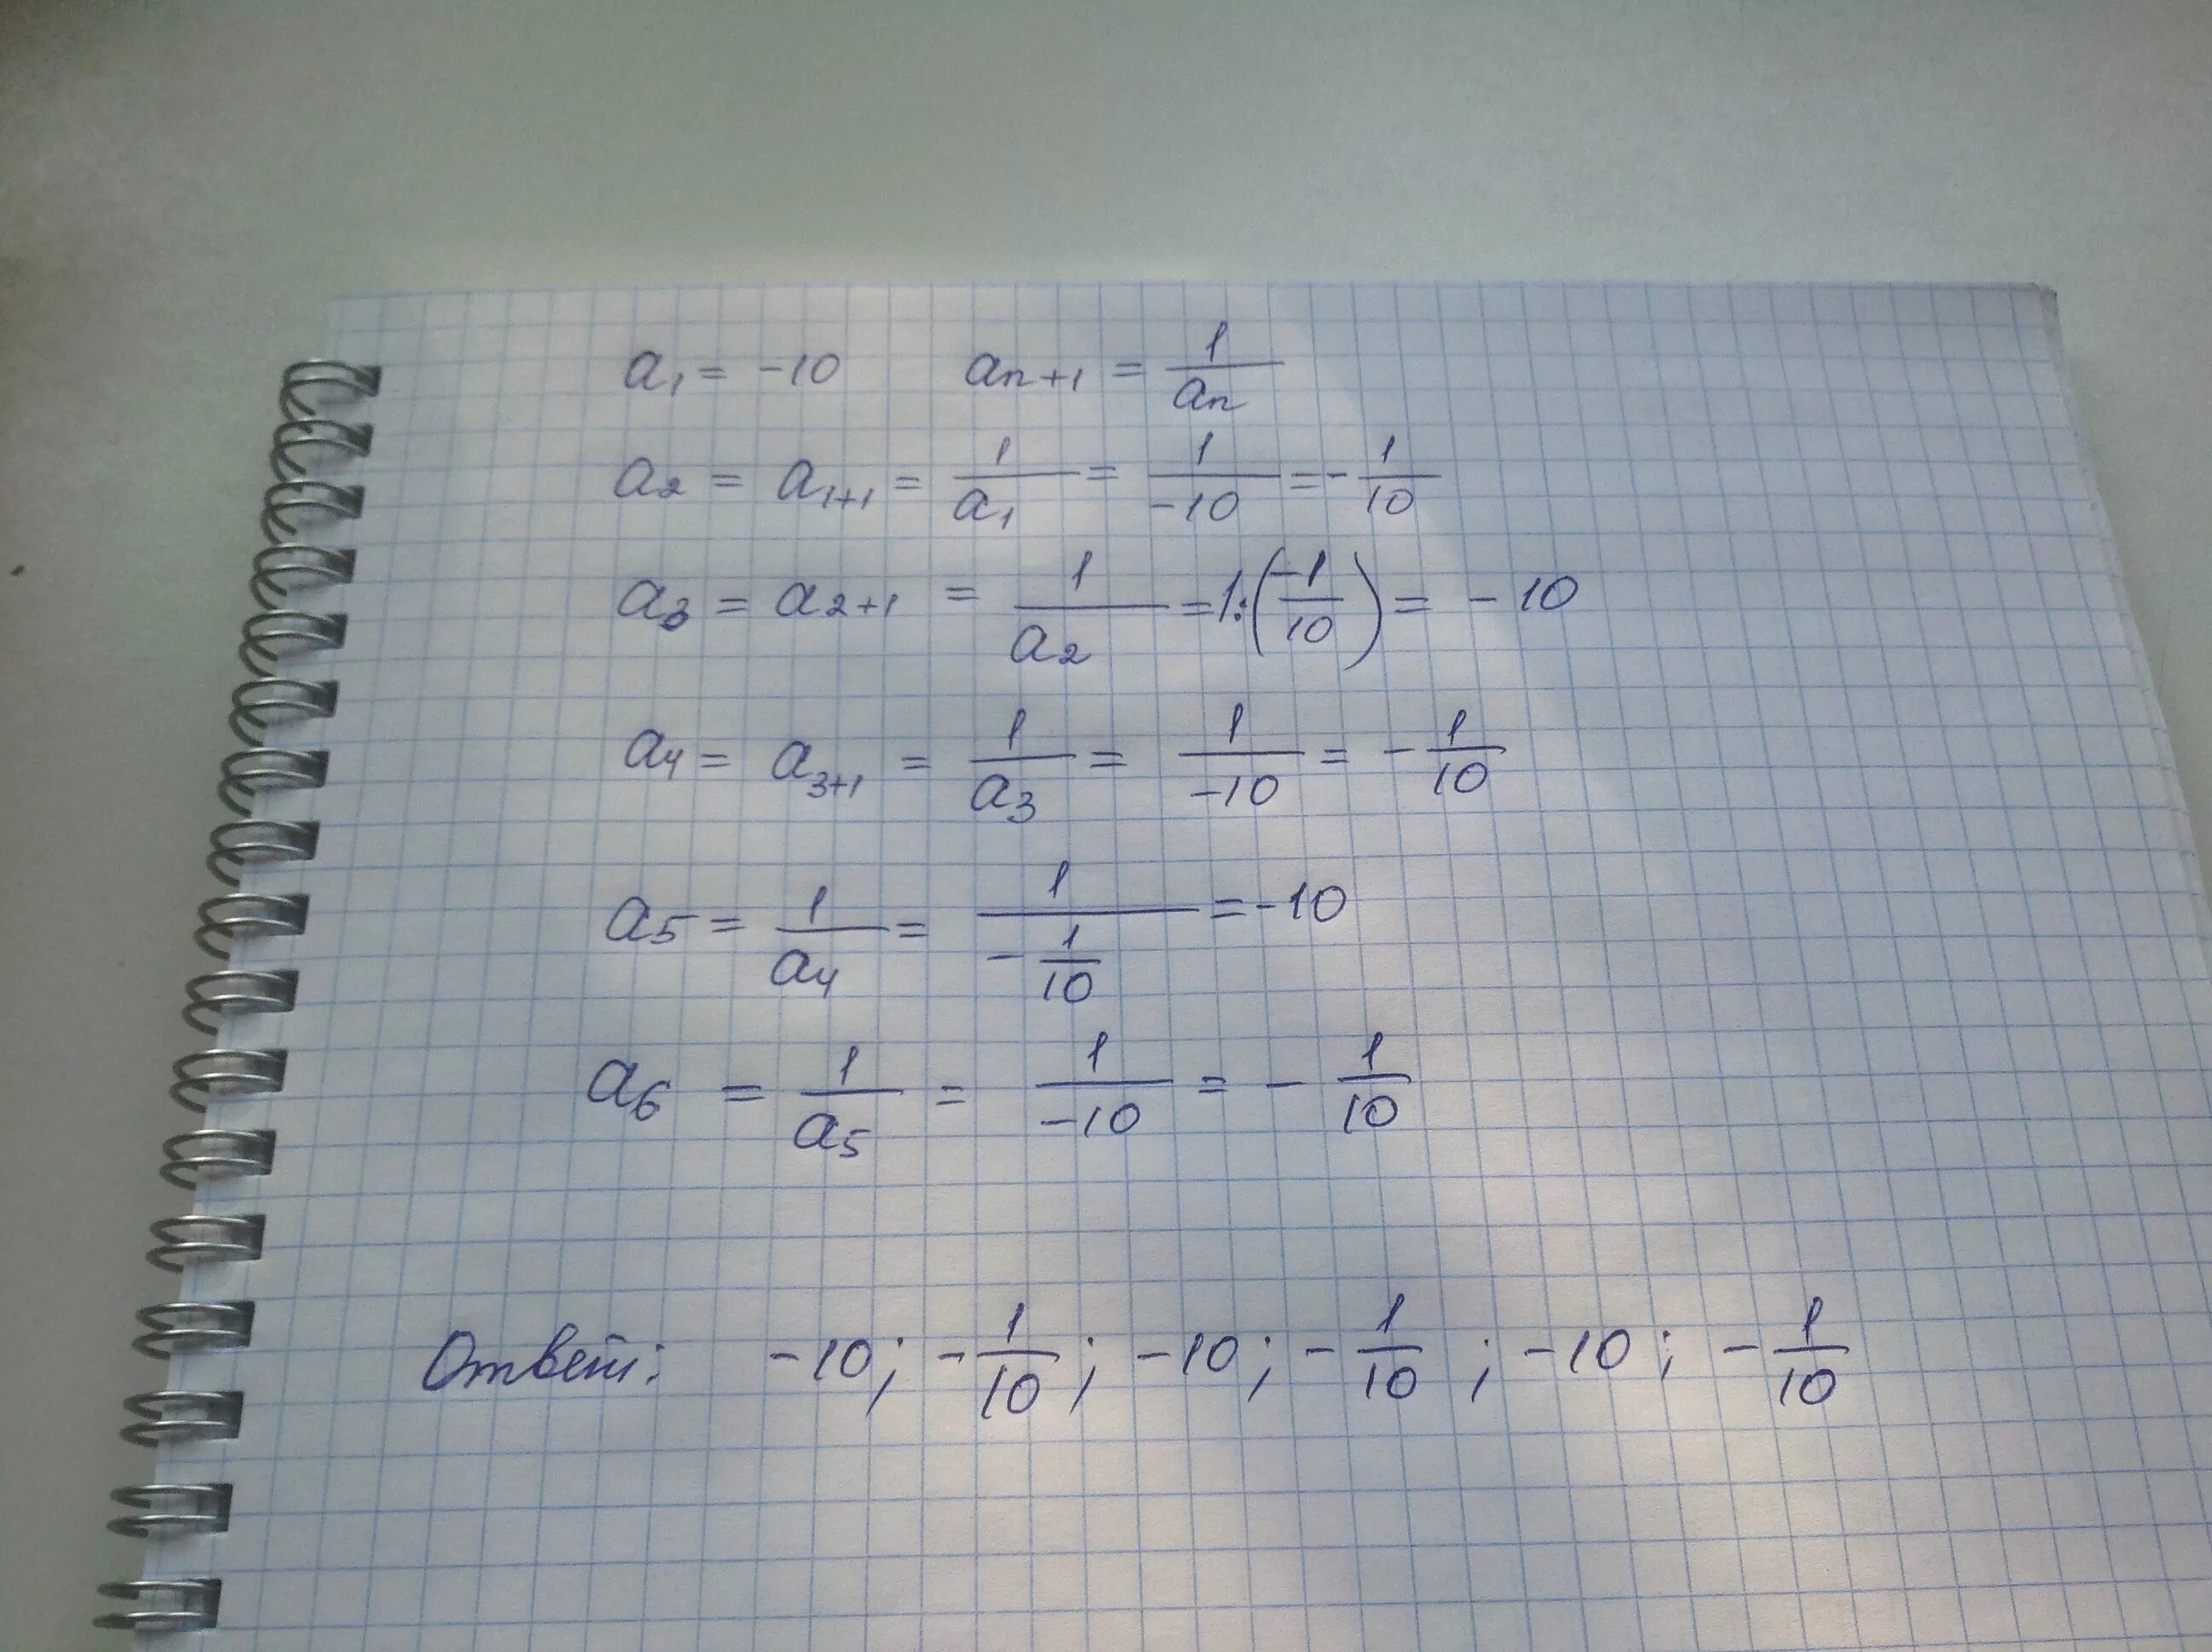 a₁ = -10   aₙ₊₁ = 1/aₙ
a₂ = a₁₊₁ = 1/a₁ = 1/-10 = -1/10
a₃ = a₂₊₁ = 1/a₂ = 1:(-1/10) = -10
a₄ = a₃₊₁ = 1/a₃ = 1/-10 = -1/10
a₅ = 1/a₄ = 1/(-1/10) = -10
a₆ = 1/a₅ = 1/-10 = -1/10
Ответ: -10; -1/10; -10; -1/10; -10; -1/10